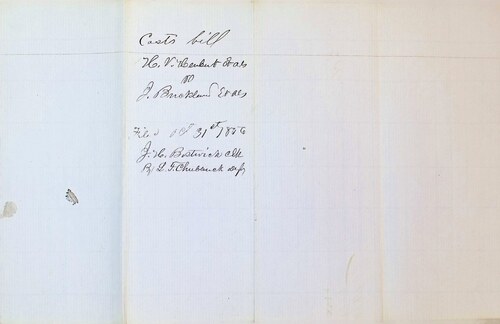 Costs bill
H. V. Et als
vs
J. Buckland Et als
Filed Oct 31st 1856
J. H. Bostwick clk
By L. F. Chubbuck dep